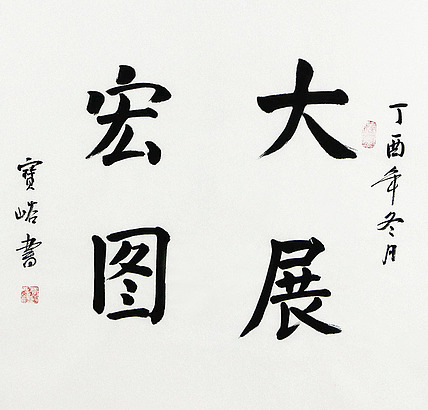 丁酉年冬月
大展
宏图
寶峪書